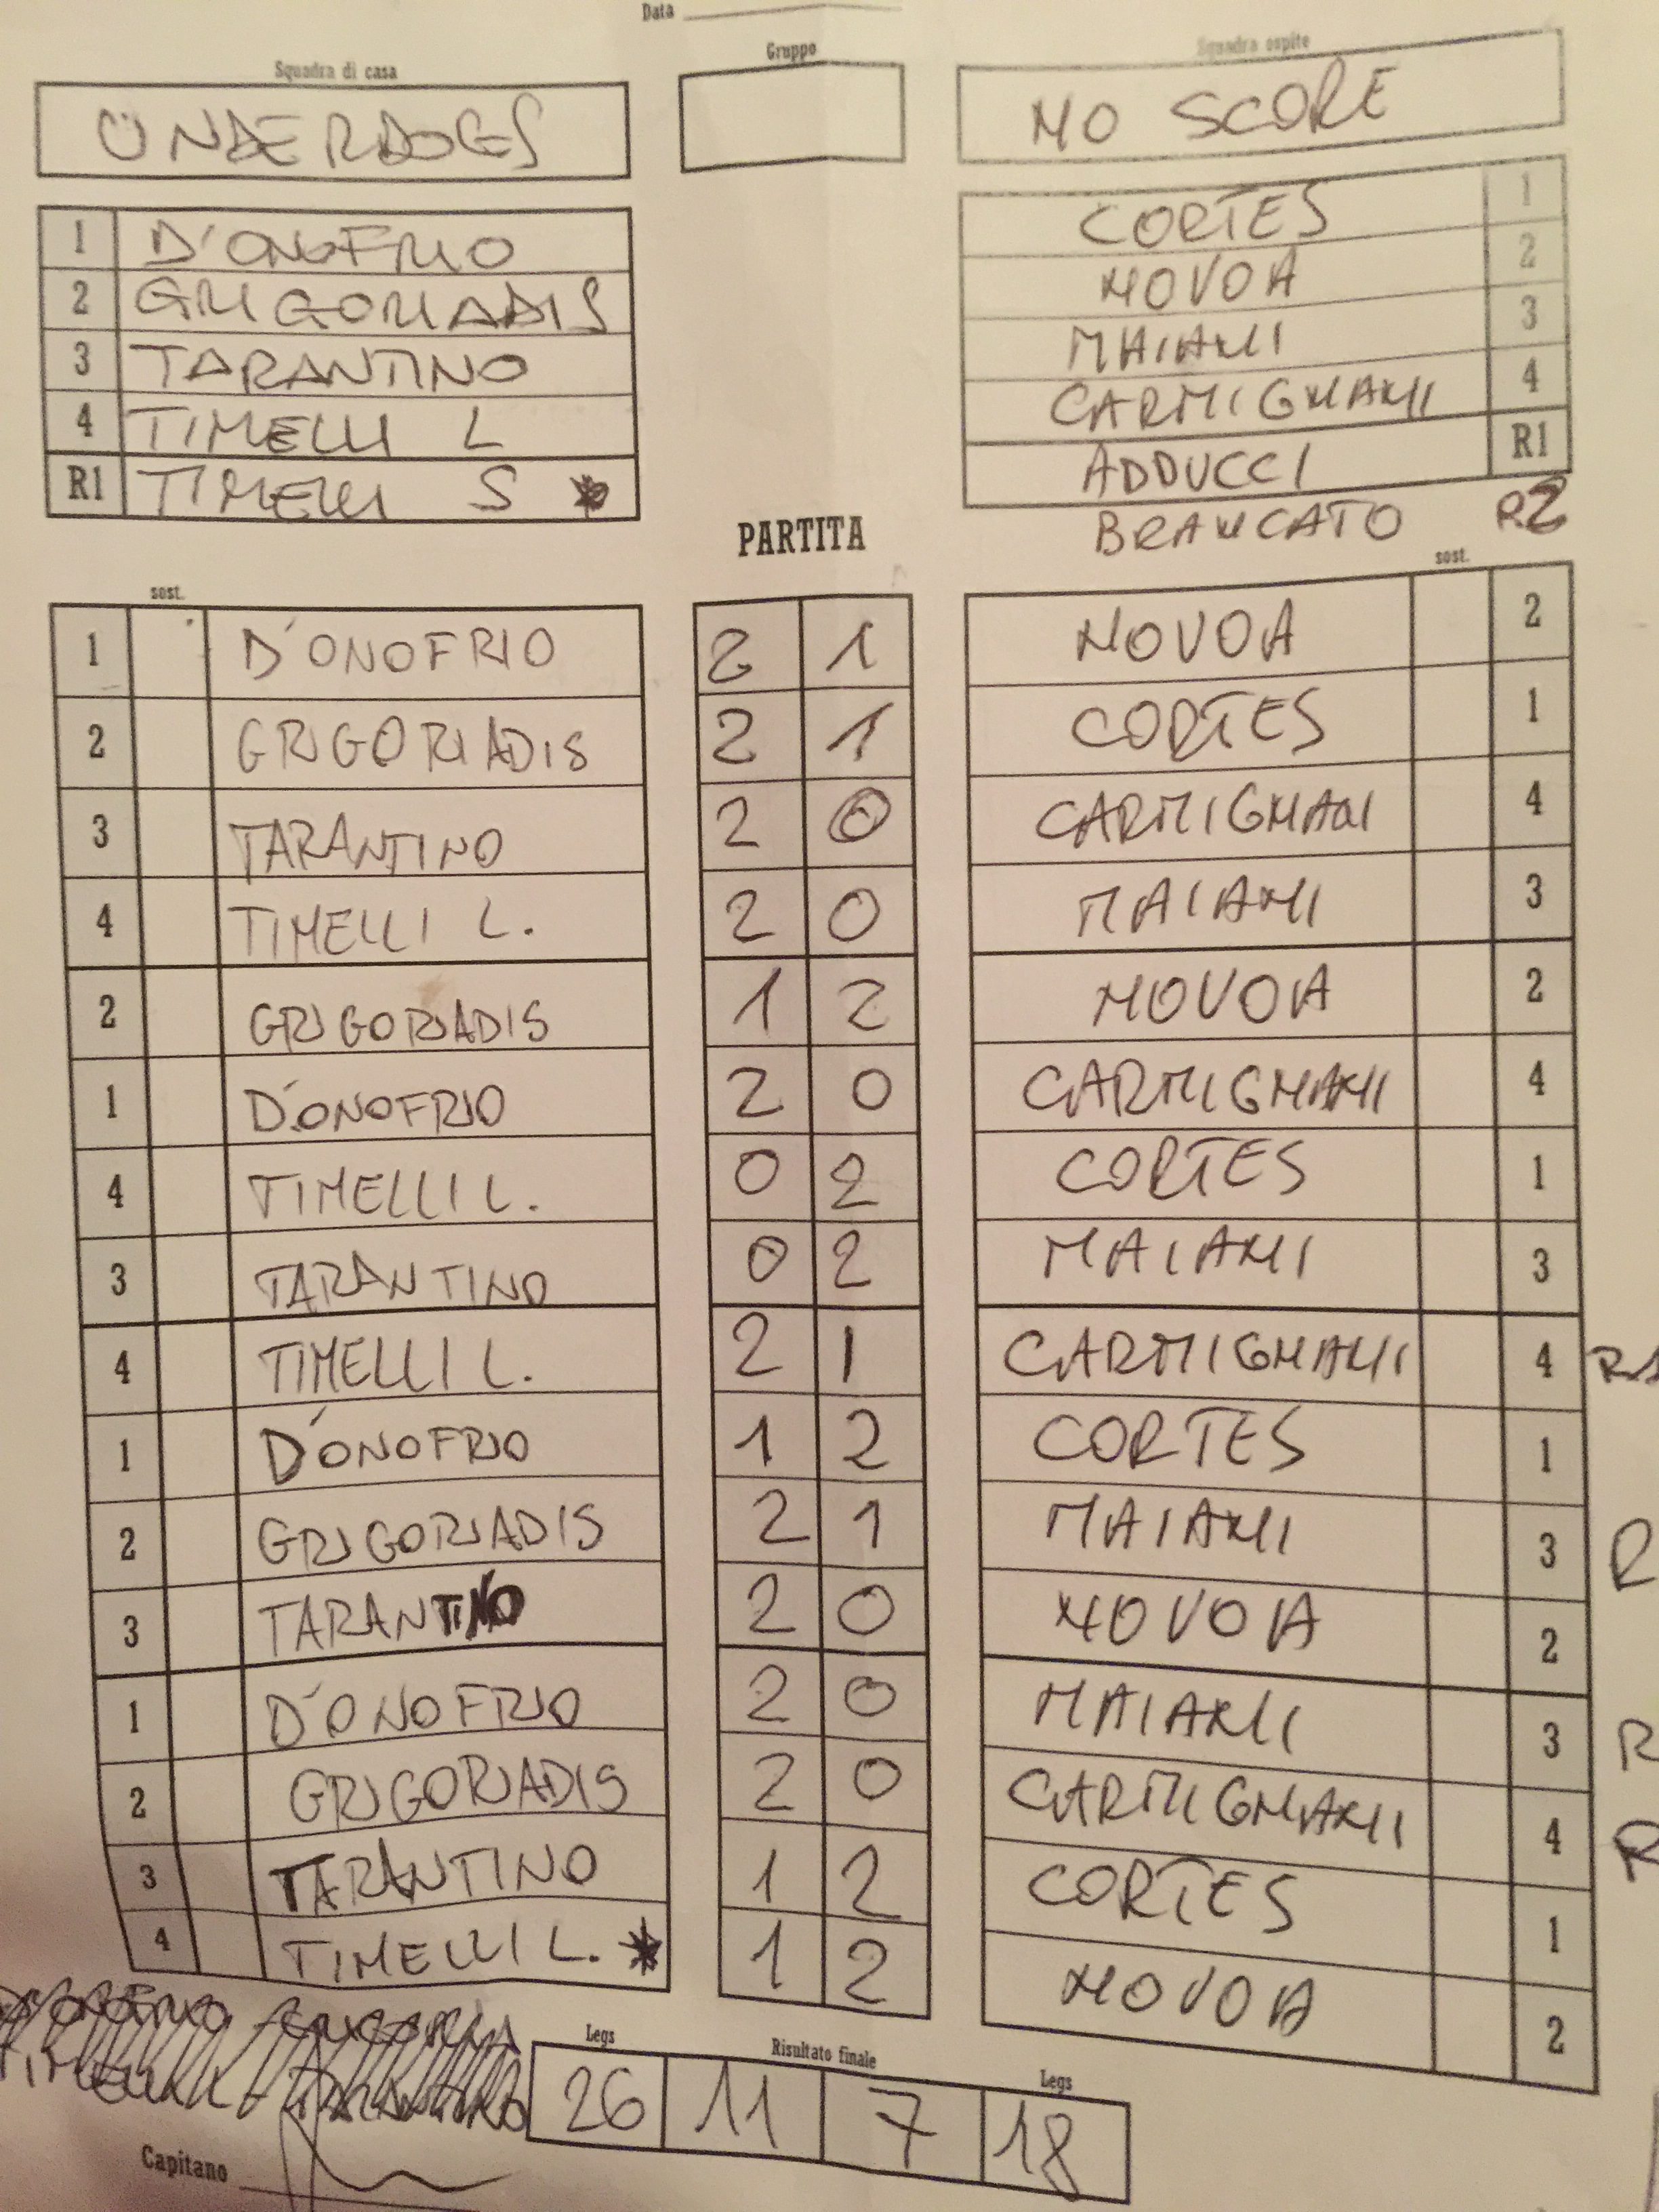 Data
Squadra di casa Gruppo Squadra ospite
UNDERDOGS NO SCORE
1 D'ONOFRIO CORTES 1
2 GRIGORIADIS NOVOA 2
3 TARANTINO MAIANI 3
4 TIMELLI L CARMIGNANI 4
R1 TIMELLI S * ADDUCCI R1
BRANCATO R2
PARTITA
sost. sost.
1 D'ONOFRIO 2 1 NOVOA 2
2 GRIGORIADIS 2 1 CORTES 1
3 TARANTINO 2 0 CARMIGNANI 4
4 TIMELLI L. 2 0 MAIANI 3
2 GRIGORIADIS 1 2 NOVOA 2
1 D'ONOFRIO 2 0 CARMIGNANI 4
4 TIMELLI L. 0 2 CORTES 1
3 TARANTINO 0 2 MAIANI 3
4 TIMELLI L. 2 1 CARMIGNANI 4 R1
1 D'ONOFRIO 1 2 CORTES 1
2 GRIGORIADIS 2 1 MAIANI 3 R
3 TARANTINO 2 0 NOVOA 2
1 D'ONOFRIO 2 0 MAIANI 3 R
2 GRIGORIADIS 2 0 CARMIGNANI 4 R
3 TARANTINO 1 2 CORTES 1
4 TIMELLI L. * 1 2 NOVOA 2
Legs Risultato finale Legs
26 11 7 18
Capitano